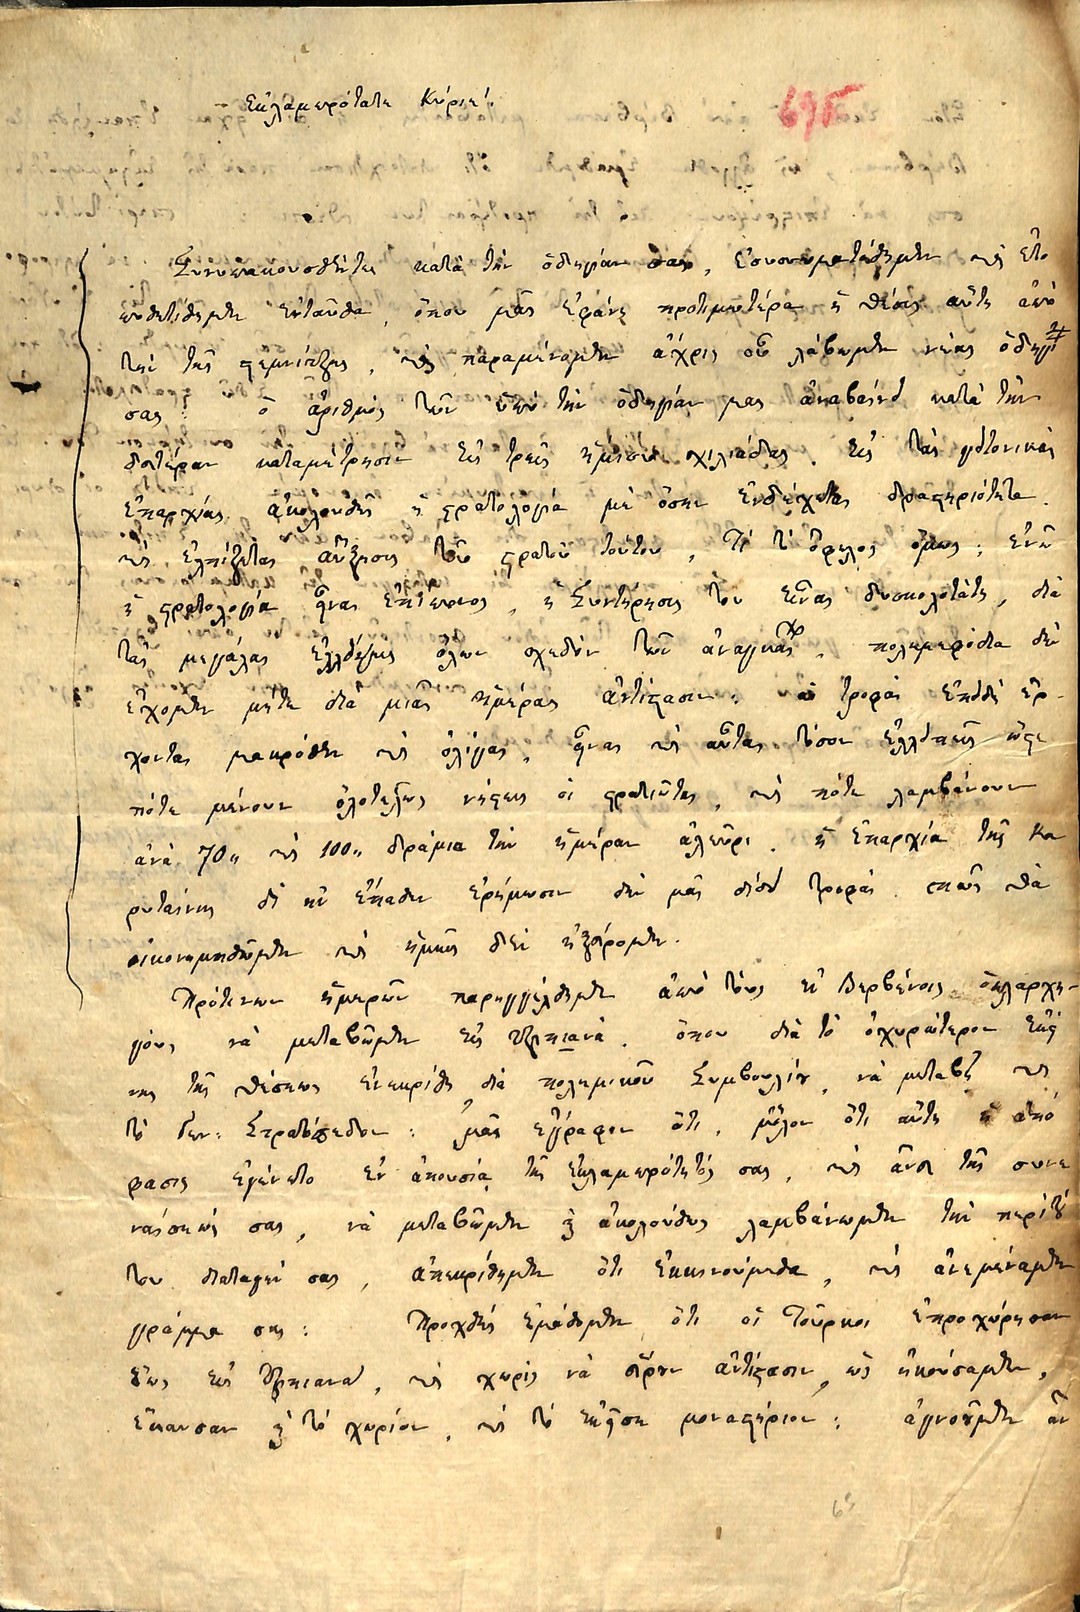 Ἐκλαμπρότατε Κύριε!
695
κατὰ τὴν ὁδηγίαν σας, ἐσυσσωματώθημεν καὶ ἐτο
ποθετήθημεν ἐνταῦθα, ὅπου μᾶς ἐφάνη προτιμωτέρα ἡ θέσις αὕτη ἀπὸ
τὴν τῆς καὶ παραμένομεν ἄχρις οὗ λάβωμεν νέας ὁδηγί
σας: ὁ ἀριθμὸς τῶν ὑπὸ τὴν ὁδηγίαν μας ἀναβαίνει κατὰ τὴν
δευτέραν καταμέτρησιν εἰς τρεῖς ἥμισυ χιλιάδας. εἰς τὰς γειτονικὰς
ἐπαρχίας ἀκολουθεῖ ἡ στρατολογία μὲ ὅσην ἐνδέχεται δραστηριότητα.
καὶ ἐλπίζεται αὔξησις τοῦ στρατοῦ τούτου, Τί τὸ ὄφελος ὅμως; ἐνῶ
ἡ στρατολογία ᾖναι ἐπίπονος, ἡ συντήρησίς του εἶναι δυσκολωτάτη, διὰ
τὰς μεγάλας ἐλλείψεις ὅλων σχεδὸν τῶν ἀναγκαίων. πολεμεφόδια δὲν
ἔχομεν μήτε διὰ μιᾶς ἡμέρας ἀντίστασιν: αἱ τροφαὶ ἐπειδὴ ἔρ-
χονται μακρόθεν καὶ ὀλίγαι, ᾖναι καὶ αὗται τόσον ἐλλιπεῖς ὥστε
πότε μένουν ὁλοτελῶς νήστεις οἱ στρατιῶται, καὶ πότε λαμβάνουν
ἀνὰ 70„ καὶ 100„ δράμια τὴν ἡμέραν ἀλεῦρι. ἡ ἐπαρχία τῆς Κα
ρυταίνης δι' ἣν ἔπαθεν ἐρήμωσιν δὲν μᾶς δίδει τροφάς. πῶς θὰ
οἰκονομηθῶμεν καὶ ἡμεῖς δὲν ἠξεύρομεν.
Πρότινων ἡμερῶν παρηγγέλθημεν ἀπὸ τοὺς ἐν Βερβένοις ὁπλαρχη-
γοὺς νὰ μεταβῶμεν εἰς Τζιπιανά. ὅπου διὰ τὸ ὀχυρώτερον ἐκεί
νης τῆς θέσεως ἐνεκρίθη διὰ πολεμικοῦ Συμβουλίου, νὰ μεταβῇ καὶ
τὸ Γεν: Στρατόπεδον: μᾶς ἔγραφον ὅτι, μόλον ὅτι αὕτη ἡ ἀπό
φασις ἐγένετο ἐν ἀπουσίᾳ τῆς ἐκλαμπρότητός σας, καὶ ἄνευ τῆς συνε
ναίσεώς σας, νὰ μεταβῶμεν καὶ ἀκολούθως λαμβάνωμεν τὴν περὶ τού
του διαταγήν σας, ἀπεκρίθημεν ὅτι ἐκκινούμεθα, καὶ ἀνεμέναμεν
γράμμα σας: Προχθὲς ἐμάθομεν ὅτι οἱ Τοῦρκοι ἐπροχώρησαν
ἕως εἰς Τζιπιανά, καὶ χωρὶς νὰ εὕρουν ἀντίστασιν, ὡς ἠκούσαμεν,
ἔκαυσαν καὶ τὸ χωρίον, καὶ τὸ ἐκεῖσε μοναστήριον: ἀγνοοῦμεν ἂν